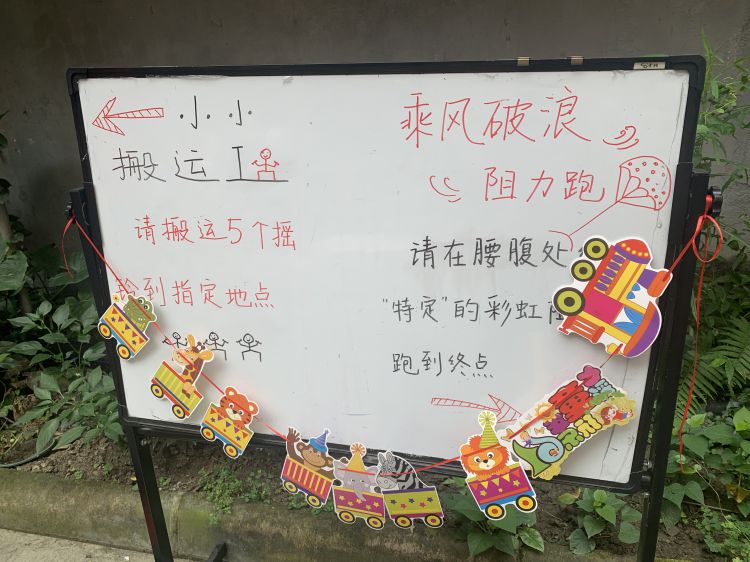 小小
搬运工
请搬运5个摇
到指定地点
乘风破浪
阻力跑
请在腰腹处
"特定"的彩虹
跑到终点